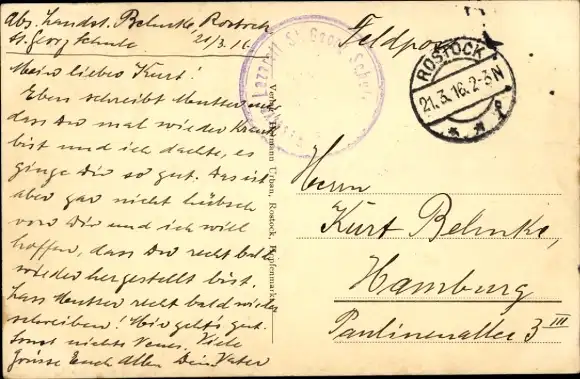 Abs. Landst. Behnke, Rostock
St. Georg Schule 21/3.16.
Mein lieber Kurt!
Eben schreibt Mutter mir
dass Du mal wieder krank
bist und ich dachte, es
ginge Dir so gut. Das ist
aber gar nicht hübsch
von Dir und ich will
hoffen, dass Du recht bald
wieder hergestellt bist.
Lass Mutter recht bald wieder
schreiben! Hier geht's gut.
Sonst nichts Neues. Viele
Grüsse Euch Allen Dein Vater
Lazarett St. Georg Schule
Verlag Hermann Urban, Rostock, Hopfenmarkt
Feldpost
ROSTOCK
21.3.16.2-3N
Herrn
Kurt Behnke,
Hamburg
Paulinenallee 3 III